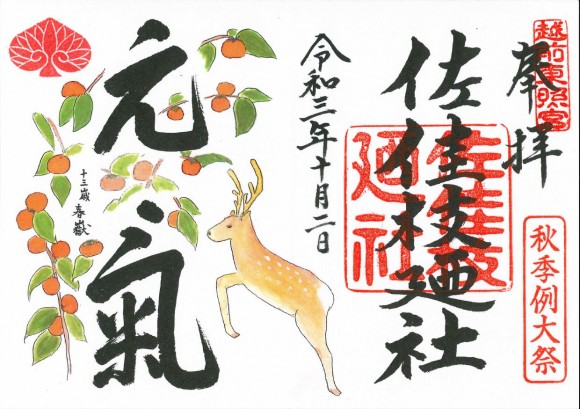 越前東照宮
奉拝
秋季例大祭
佐佳枝廼社
佐佳枝廼社
令和三年十月二日
元氣
十三歳 春嶽